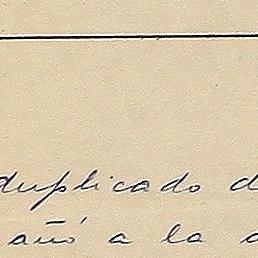 duplicado d
añó a la a